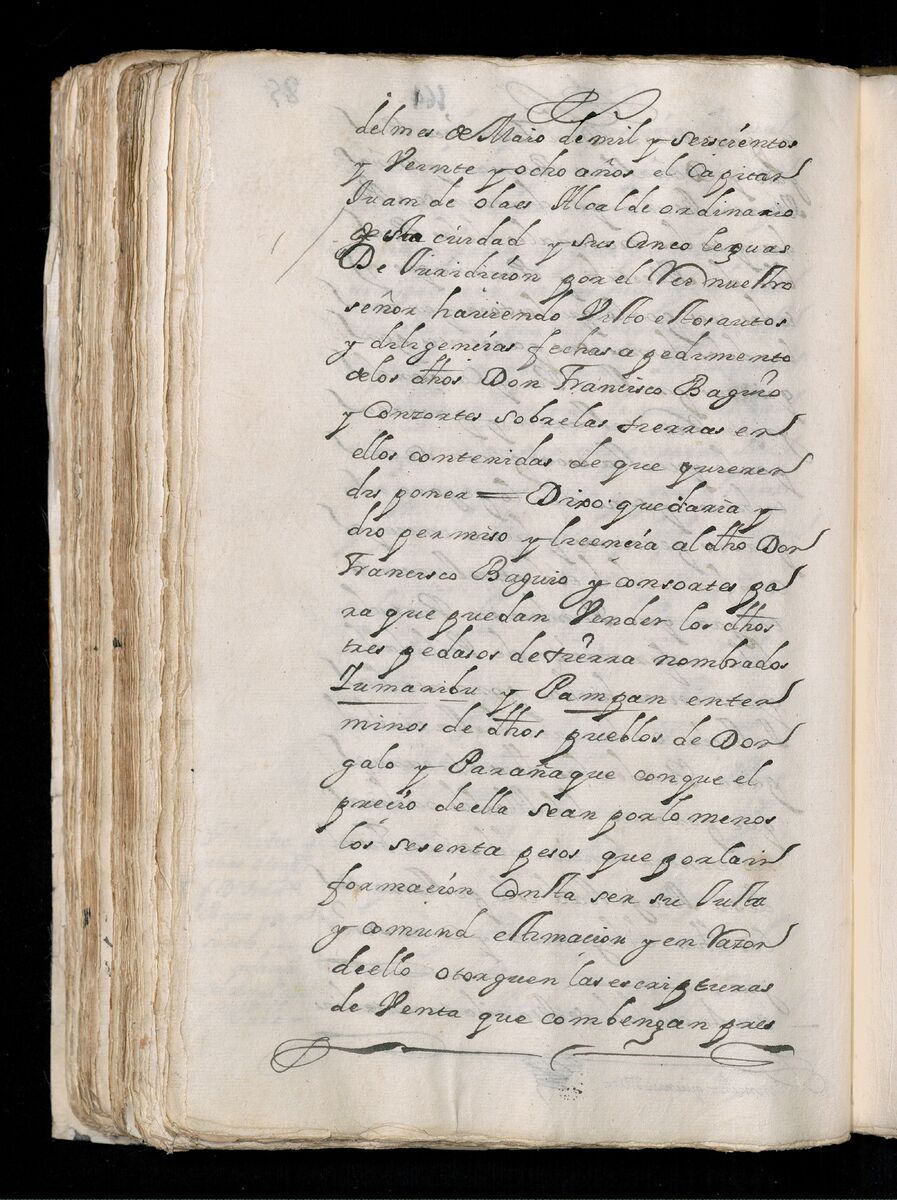 del mes de Maio de mil y seiscientos
y Veinte y ocho años el Capitan
Juan de olaes Alcalde ordinario
desta ciudad y sus cinco leguas
De Juridicion por el Rey nuestro
señor haviendo Visto estos autos
y diligencias fechas a pedimento
de los dhos Don Francisco Baguio
y Conzortes sobre las tierras en
ellos contenidas de que quieren
dis poner = Dixo que daria y
dio permiso y licencia al dho Don
Francisco Baguio y consortes pa
ra que puedan Vender los dhos
tres pedasos de tierra nombrados
Zumaribu y Pampan enter
minos de dhos pueblos de Don
galo y Parañaque con que el
precio de ella sean por lo menos
los sesenta pesos que por la in
formacion Consta ser su Justa
y comund estimacion y en Razon
de ello otorguen las escripturas
de Venta que combengan pres